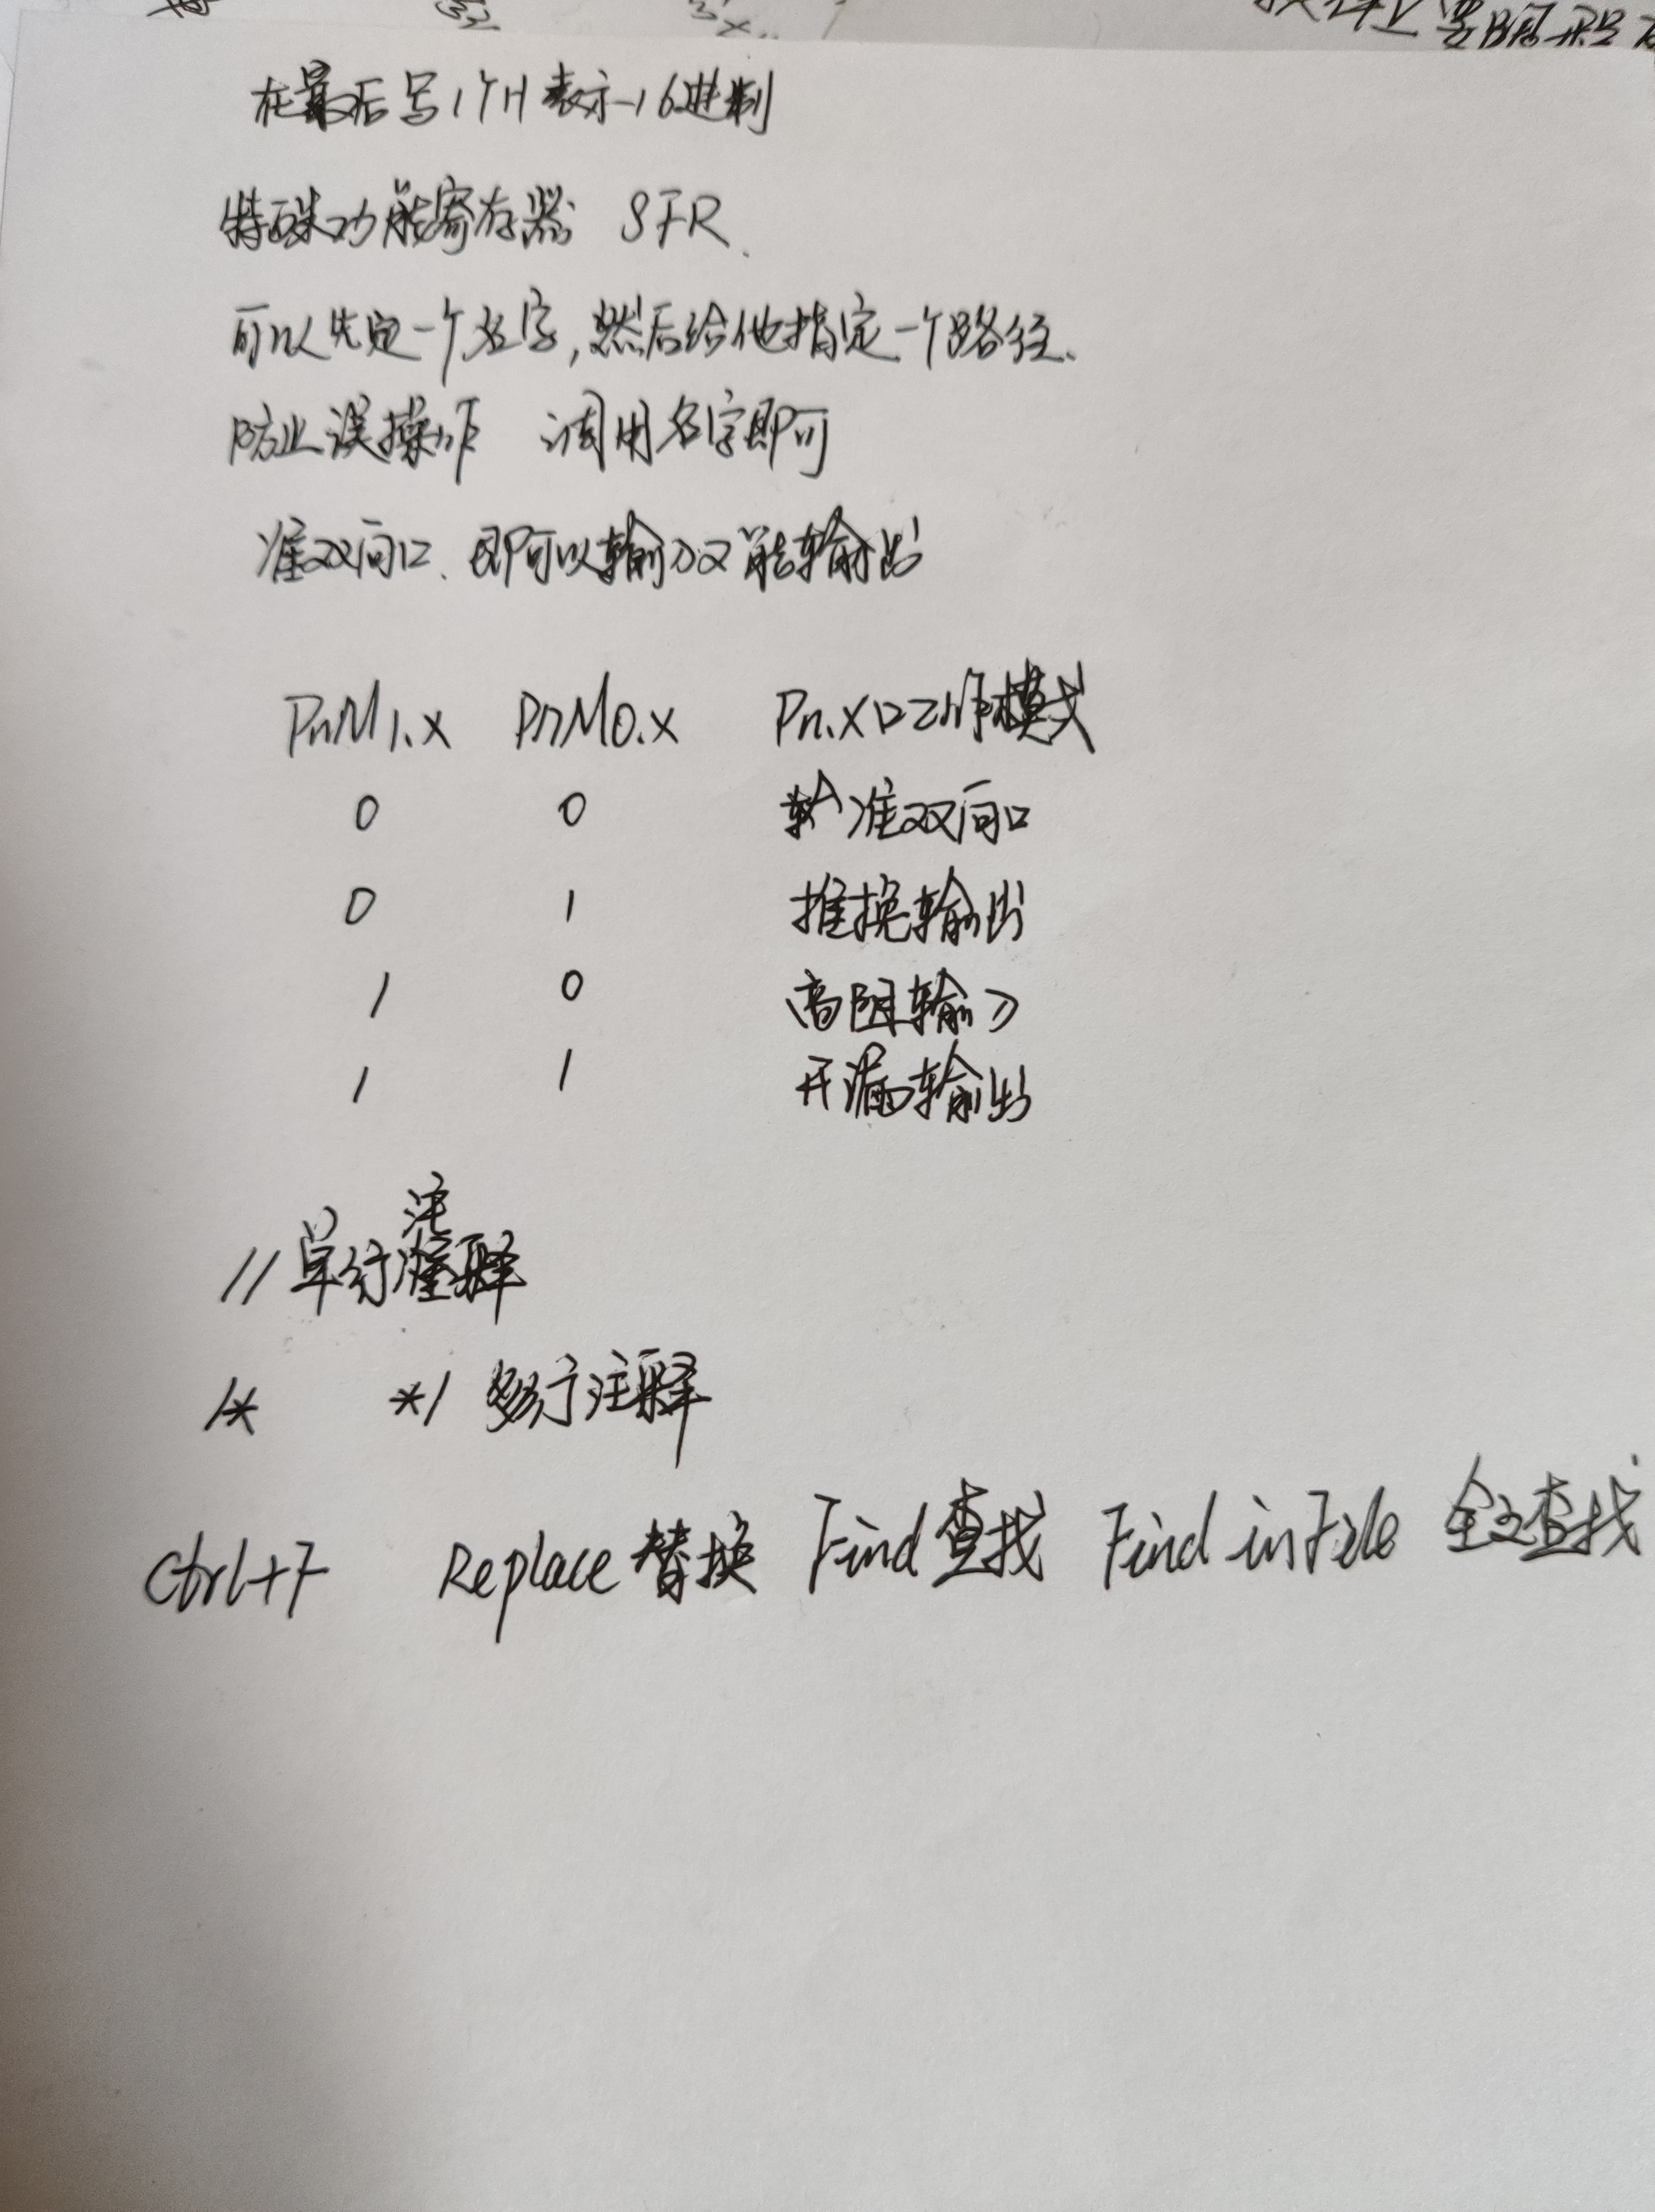 在最后写1个H表示16进制
特殊功能寄存器 SFR.
可以先定一个名字,然后给他指定一个路径.
防止误操作 调用名字即可
准双向口、即可以输入又能输出
PnM1.X PnM0.X Pn.X口工作模式
0 0 准双向口
0 1 推挽输出
1 0 高阻输入
1 1 开漏输出
//单行注释
/* */ 多行注释
Ctrl+F Replace替换 Find查找 Find in File 全文查找